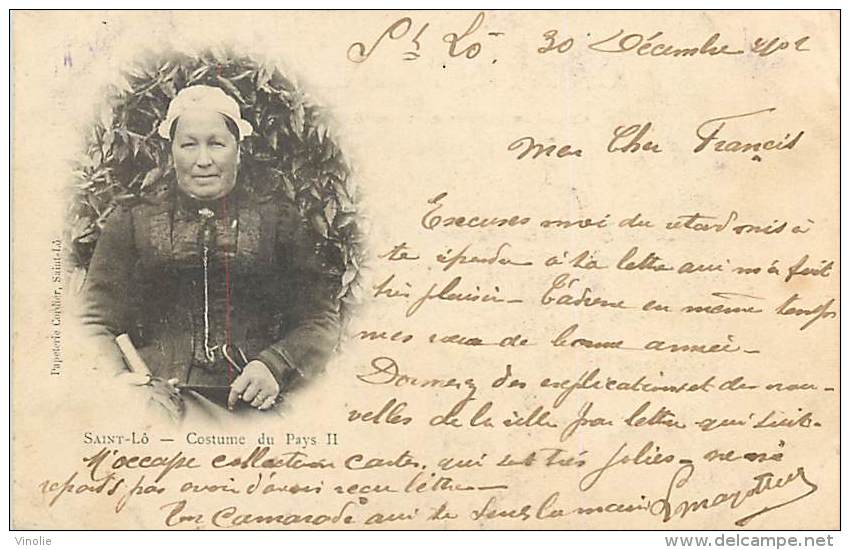 St Lô. 30 Décembre 1902
Mon Cher Francis
Excuses moi du retard mis à
te répondre à ta lettre qui m'a fait
très plaisir - T'adresse en même temps
mes vœux de bonne année -
Donnerez des explications et des nou-
velles de la ville par lettre qui suit -
M'occupe collection cartes, qui est très jolies -
reports pas avoir d'avoir reçu lettre -
Ton Camarade qui te serre la main
Papeterie Cordier, Saint-Lô
SAINT-LÔ — Costume du Pays II
Vinolie
delcampe.net